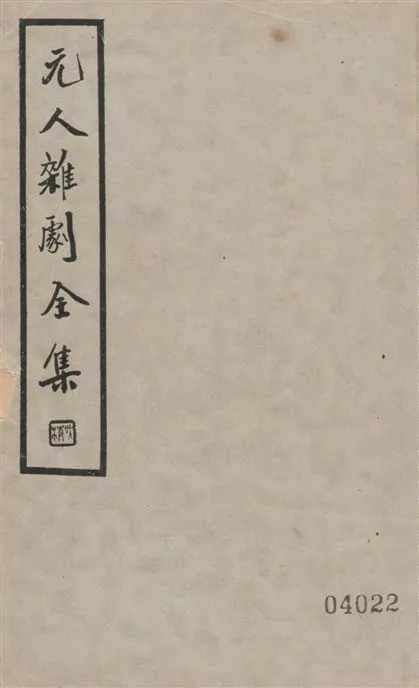 元人雜劇全集
04022